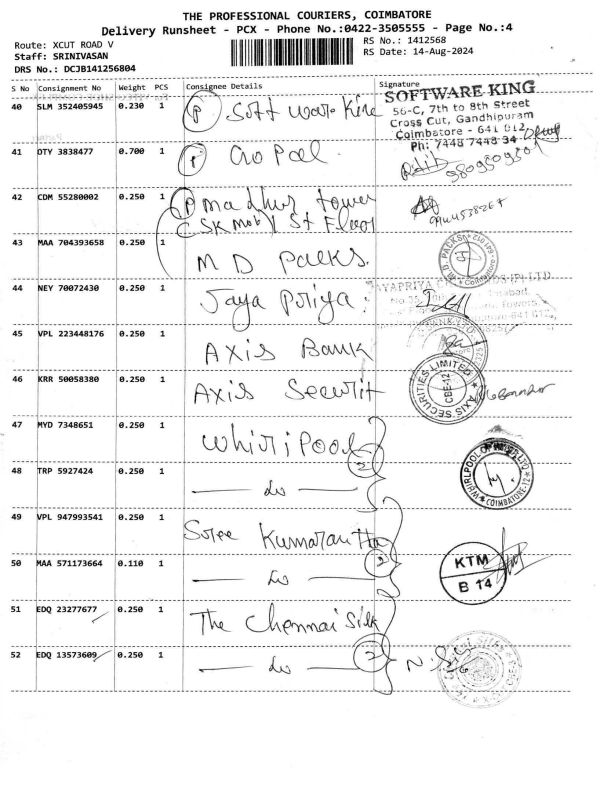 THE PROFESSIONAL COURIERS, COIMBATORE
Delivery Runsheet - PCX - Phone No.:0422-3505555 - Page No.:4
Route: XCUT ROAD V
RS No.: 1412568
Staff: SRINIVASAN
RS Date: 14-Aug-2024
DRS No.: DCJB141256804
S No Consignment No Weight PCS Consignee Details Signature
40 SLM 352405945 0.230 1 P Soft ware King
SOFTWARE KING
56-C, 7th to 8th Street
Cross Cut, Gandhipuram
Coimbatore - 641 012
Ph: 7448 7448 34
41 OTY 3838477 0.700 1
9809509501
42 CDM 55280002 0.250 1 P madhur tower
SK mob 1 St Floor
43 MAA 704393658 0.250 1 M D Packs.
M.D. PACKS
Coimbatore
44 NEY 70072430 0.250 1 Jaya Priya
45 VPL 223448176 0.250 1 Axis Bank
46 KRR 50058380 0.250 1 Axis Securit
AXIS SECURITIES LIMITED
CBE-12
47 MYD 7348651 0.250 1 Whirlpool
2
WHIRLPOOL OF INDIA LTD
COIMBATORE-12
48 TRP 5927424 0.250 1 do
49 VPL 947993541 0.250 1 Sree Kumaran
2
50 MAA 571173664 0.110 1 do
KTM
B 14
51 EDQ 23277677 0.250 1 The Chennai Silk
2
52 EDQ 13573609 0.250 1 do